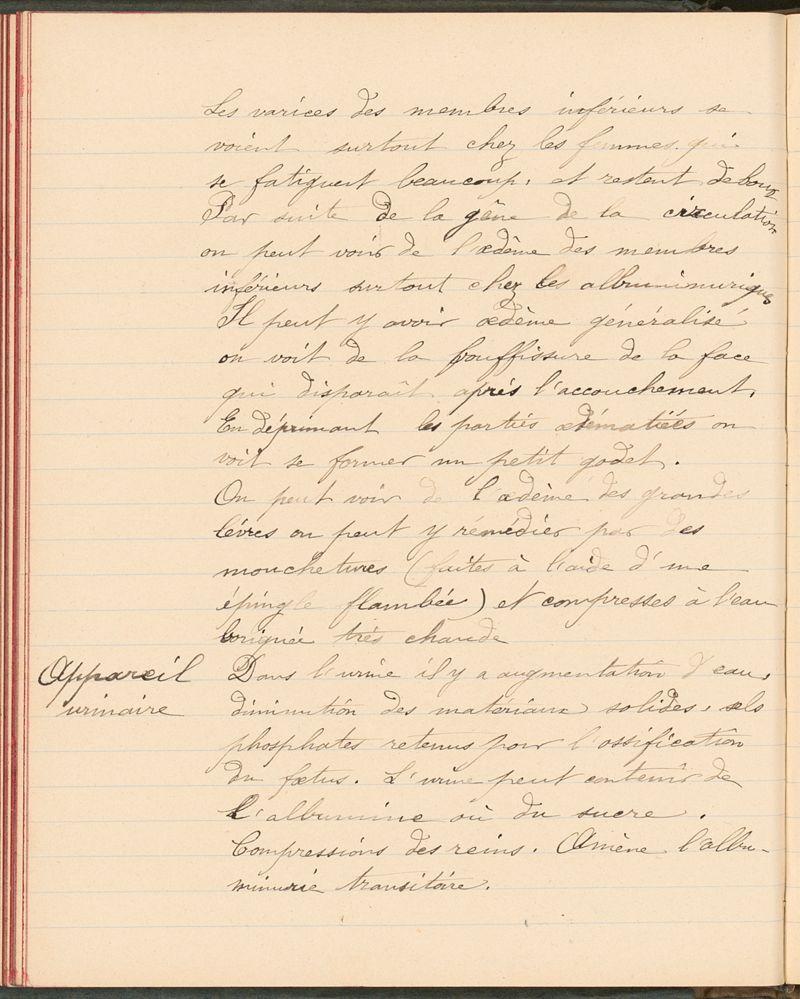 Les varices des membres inférieurs se
voient surtout chez les femmes qui
se fatiguent beaucoup, et restent debout
Par suite de la gêne de la circulation
on peut voir de l'œdême des membres
inférieurs surtout chez les albuminuriques
Il peut y avoir œdème généralisé
on voit de la bouffissure de la face
qui disparaît aprés l'accouchement.
En déprimant les parties œdématiées on
voit se former un petit godet.
On peut voir de l'œdème des grandes
lèvres on peut y remédier par des
mouchetures (faites à l'aide d'une
épingle flambée) et compresses à l'eau
boriquée très chaude
Appareil Dans l'urine il y a augmentation d'eau,
urinaire diminution des matériaux solides, sels
phosphates retenus pour l'ossification
du fœtus. L'urine peut contenir de
l'albumine où du sucre.
Compressions des reins. Amène l'albu-
minurie transitoire.